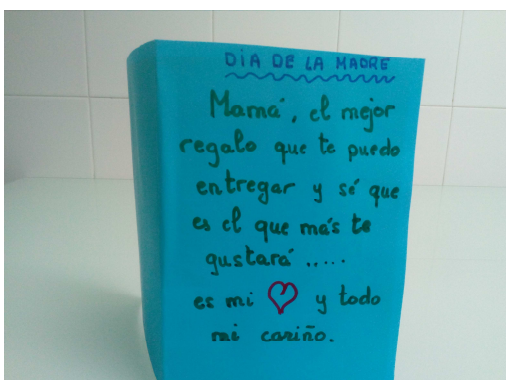 DIA DE LA MADRE
Mamá, el mejor
regalo que te puedo
entregar y sé que
es el que más te
gustará .....
es mi ♡ y todo
mi cariño.